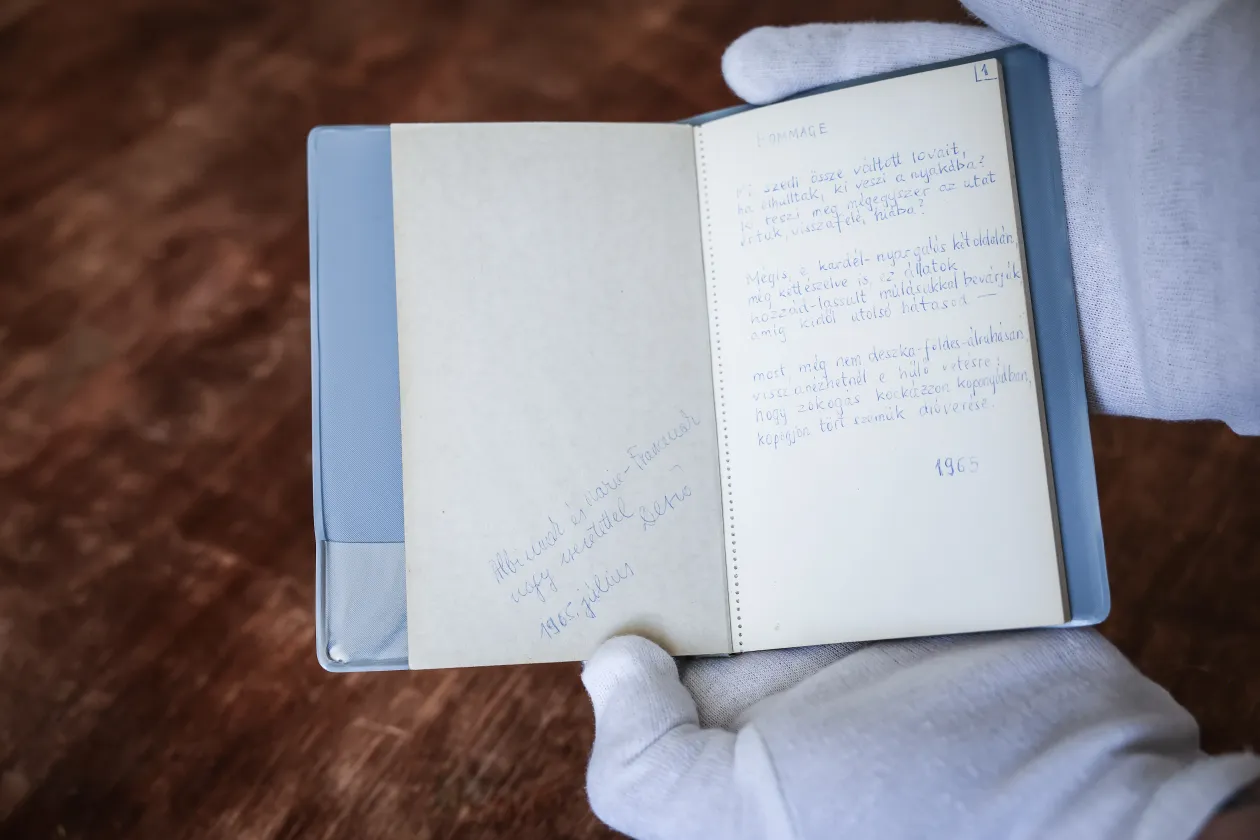 Albinunak és Marie-Francenak
nagy szeretettel Dezső
1965. július
1
HOMMAGE
Ki szedi össze váltott lovait,
ha elhulltak, ki veszi a nyakába?
ki teszi meg mégegyszer az utat
értük, visszafelé, hiába?
Mégis, e kardél-nyargalás kétoldalán,
még kettészelve is, az állatok
hozzád-lassult múlásukkal bevárják,
amíg kidől utolsó hátasod —
most még nem deszka-földes-álruhásan,
visszanézhetnél e hűlő vetésre;
hogy zokogás kockázzon koponyádban,
kopogjon tört szemük dióverése.
1965